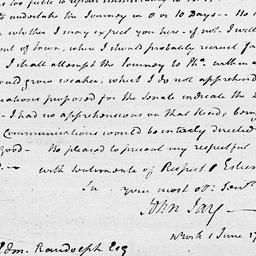 too feeble to
undertake the Journey in 8 or 10 Days — He
whether I may expect you here — if not I will
out of town, where I should probably recruit fa
I shall attempt the Journey to Pha. within a
would grow weaker, which I do not apprehend
nations proposed for the Senate indicate the
I had no apprehensions on that Head; bon
Communications would be entirely directed
good — Be pleased to present my respectful
with Sentiments of Respect & Esteem
Sir your most obt. Servt.
John Jay —
NYork 1 June 17
Edm. Randolph Esq